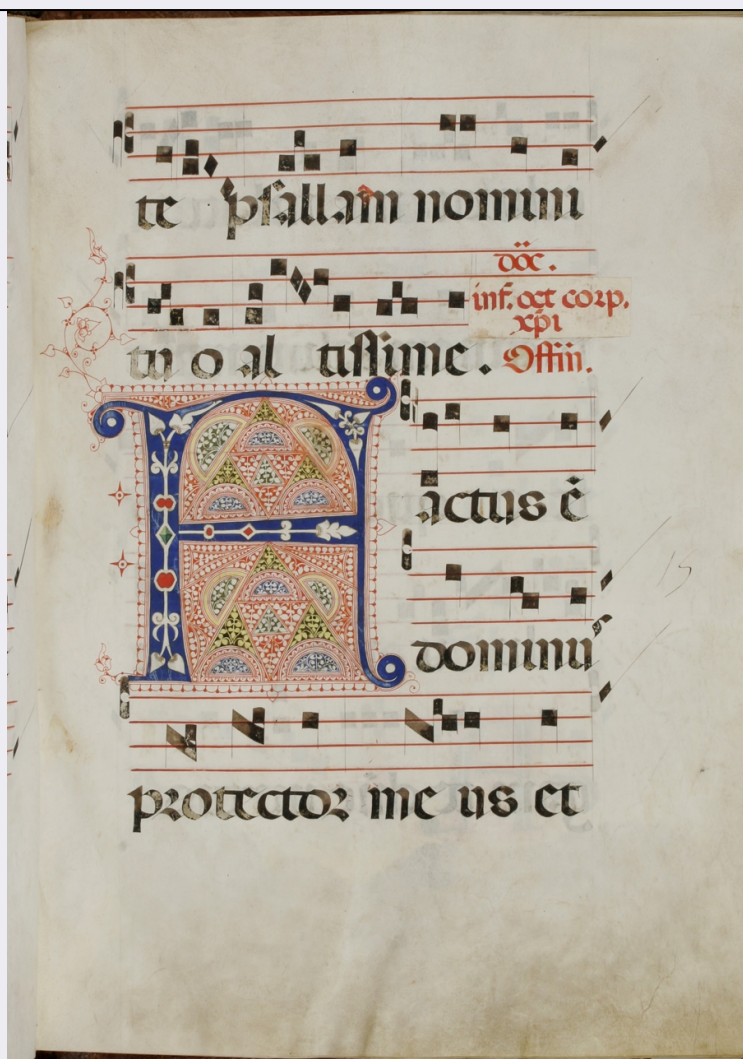 te psallam nomini
dōc.
inf. oct corp.
xp̄i
tu o al tissime. Offm̄.
Factus ē
dominu
protector me us et